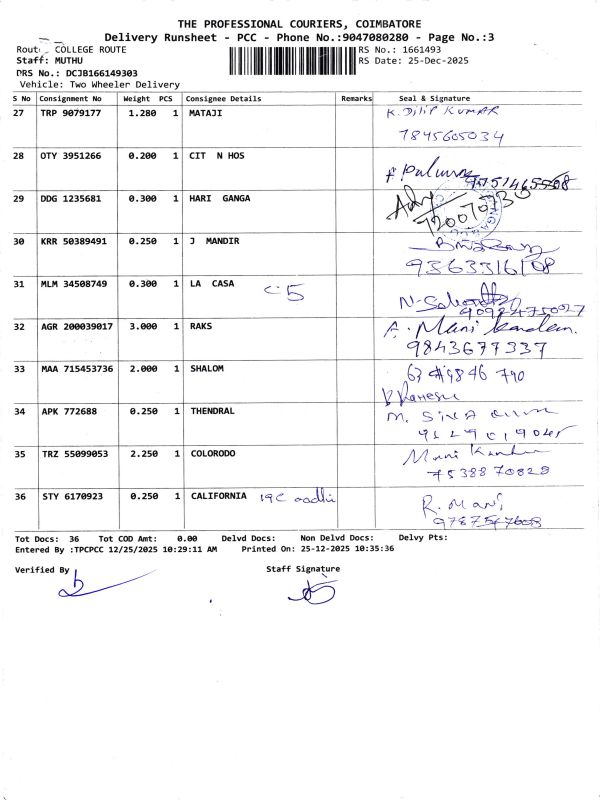 THE PROFESSIONAL COURIERS, COIMBATORE
Delivery Runsheet - PCC - Phone No.:9047080280 - Page No.:3
Route: COLLEGE ROUTE RS No.: 1661493
Staff: MUTHU RS Date: 25-Dec-2025
DRS No.: DCJB166149303
Vehicle: Two Wheeler Delivery
S No Consignment No Weight PCS Consignee Details Remarks Seal & Signature
27 TRP 9079177 1.280 1 MATAJI K. Dilip KUMAR
7845605034
28 OTY 3951266 0.200 1 CIT N HOS
29 DDG 1235681 0.300 1 HARI GANGA
30 KRR 50389491 0.250 1 J MANDIR
9363316108
31 MLM 34508749 0.300 1 LA CASA C-5
32 AGR 200039017 3.000 1 RAKS A. Mani kandan.
9843677337
33 MAA 715453736 2.000 1 SHALOM
34 APK 772688 0.250 1 THENDRAL
35 TRZ 55099053 2.250 1 COLORODO
7538870828
36 STY 6170923 0.250 1 CALIFORNIA 19C aadhi R. Mani
Tot Docs: 36 Tot COD Amt: 0.00 Delvd Docs: Non Delvd Docs: Delvy Pts:
Entered By :TPCPCC 12/25/2025 10:29:11 AM Printed On: 25-12-2025 10:35:36
Verified By Staff Signature